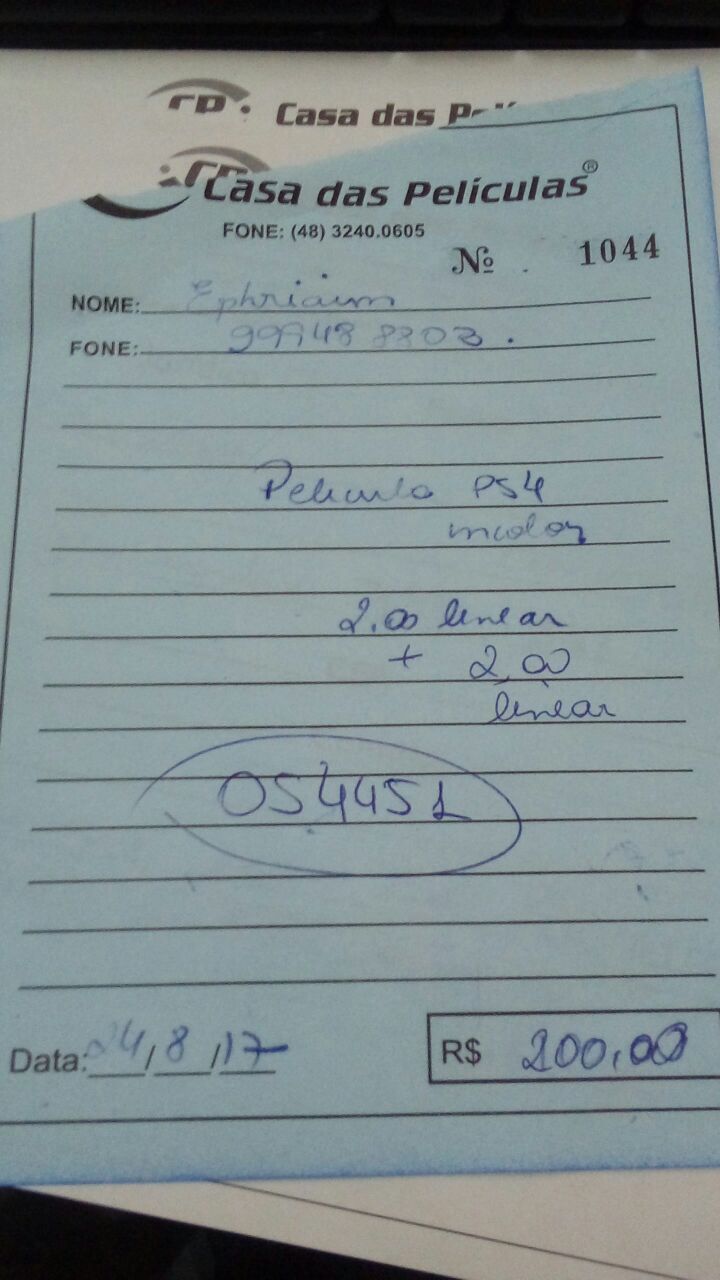 Casa das
Casa das Películas®
FONE: (48) 3240.0605
Nº 1044
NOME: Ephriaim
FONE: 99948 8803.
Pelicula PS4
incolor
2.00 linear
+ 2,00
linear
054451
Data: 24/8/17
R$ 200,00